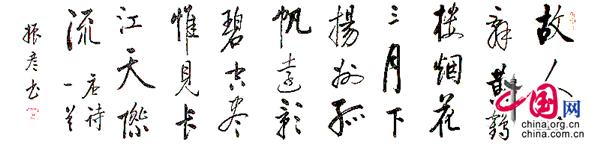 故人
辞黄鹤
楼烟花
三月下
揚州孤
帆遠影
碧空尽
惟見长
江天際
流
唐诗
一首
振彦书
中国网
china.org.cn
china.com.cn